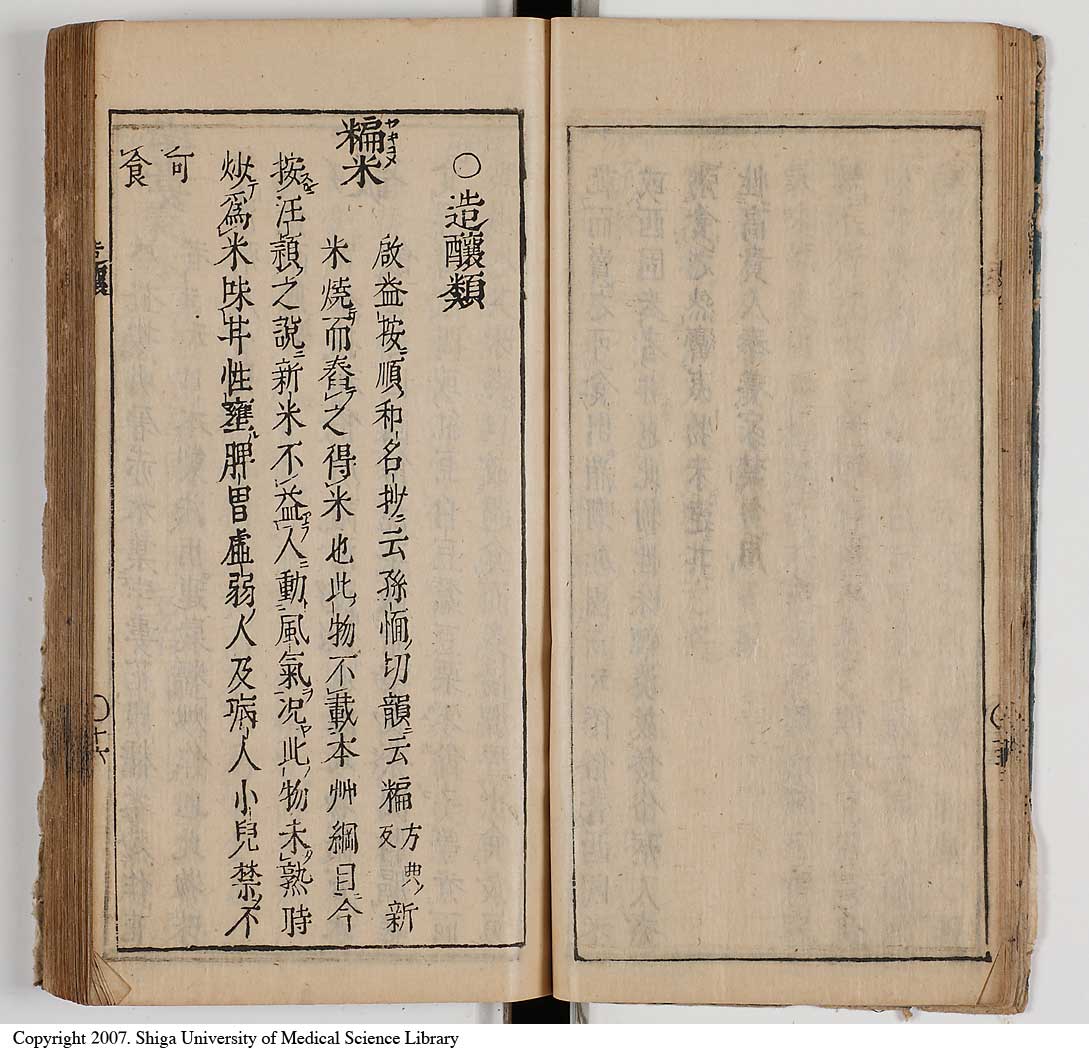 ○造釀類
糄米 ヤキコメ
啟益按順和名抄云孫愐切韻云糄方典反新
米燒而舂之得米也此物不載本艸綱目今
按汪頴之說新米不益人動風氣况此物未熟時
炒爲米味甘性壅脾胃虛弱人及病人小兒禁不
可
食
造釀
〇十六
Copyright 2007. Shiga University of Medical Science Library